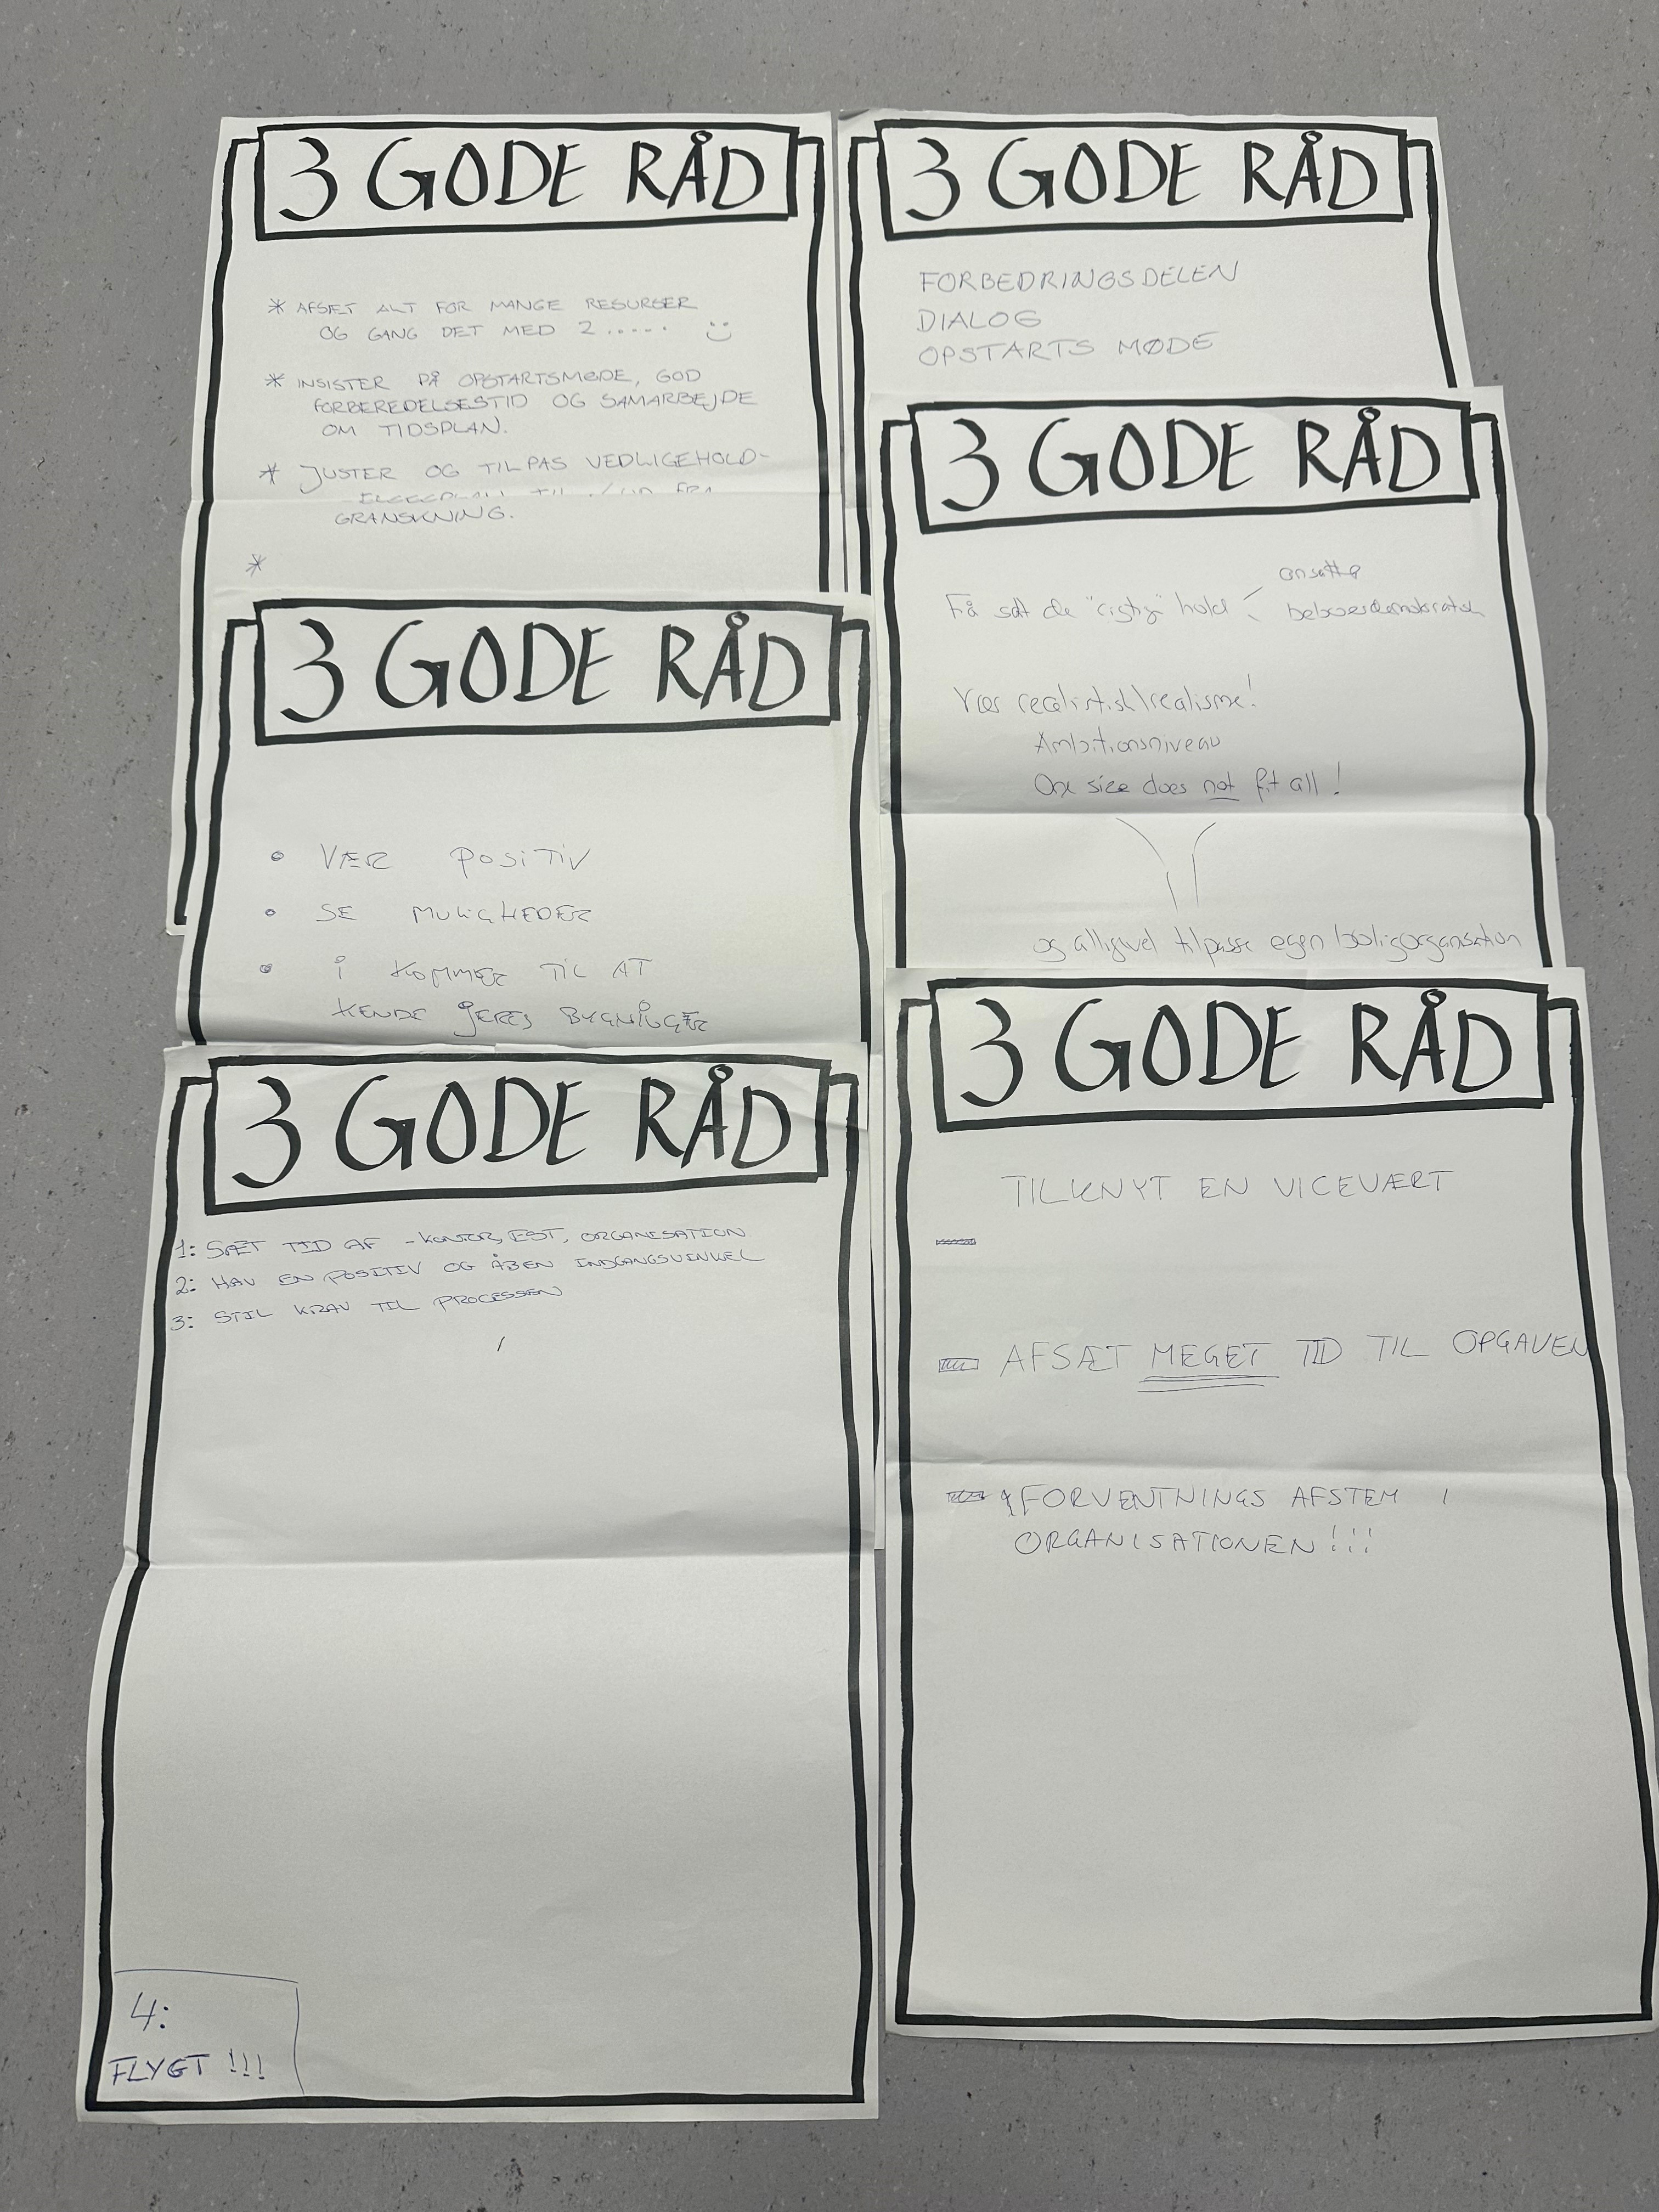 3 GODE RÅD
* AFSÆT ALT FOR MANGE RESURSER
OG GANG DET MED 2.....
* INSISTER PÅ OPSTARTSMØDE, GOD
FORBEREDELSESTID OG SAMARBEJDE
OM TIDSPLAN.
* JUSTER OG TILPAS VEDLIGEHOLD-
GRANSKNING.
*
3 GODE RÅD
• VÆR POSITIV
• SE MULIGHEDER
• I KOMMER TIL AT
KENDE JERES BYGNINGER
3 GODE RÅD
1: SÆT TID AF - KONTOR, EST, ORGANISATION
2: HAV EN POSITIV OG ÅBEN INDGANGSVINKEL
3: STIL KRAV TIL PROCESSEN
4:
FLYGT !!!
3 GODE RÅD
FORBEDRINGSDELEN
DIALOG
OPSTARTS MØDE
3 GODE RÅD
ansatte
Få sat de "rigtige" hold
beboerdemokrater
Vær realistisk/realisme!
Ambitionsniveau
One size does not fit all!
og alligevel tilpasse egen boligorganisation
3 GODE RÅD
TILKNYT EN VICEVÆRT
AFSÆT MEGET TID TIL OPGAVEN
FORVENTNINGS AFSTEM I
ORGANISATIONEN!!!